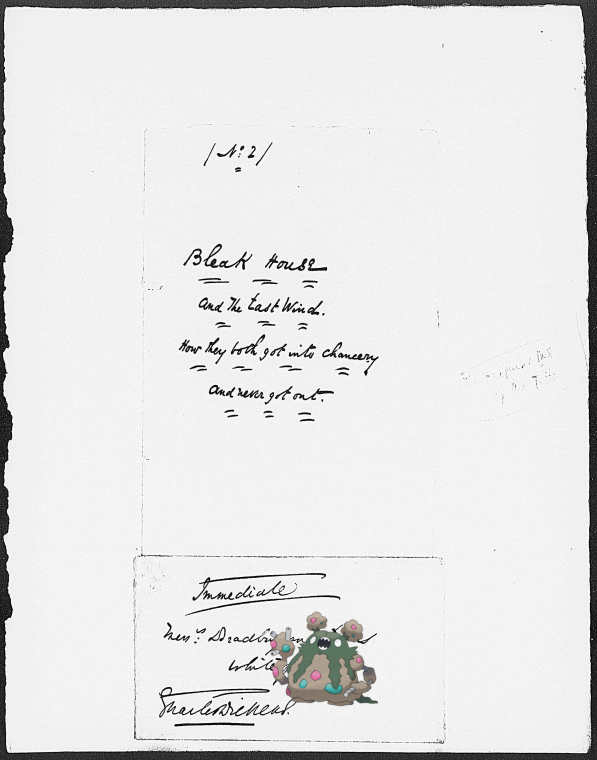 / No: 2 /
Bleak House
and The East Wind.
How they both got into chancery
and never got out.
Immediate
Mess:rs
White
Charles Dickens.